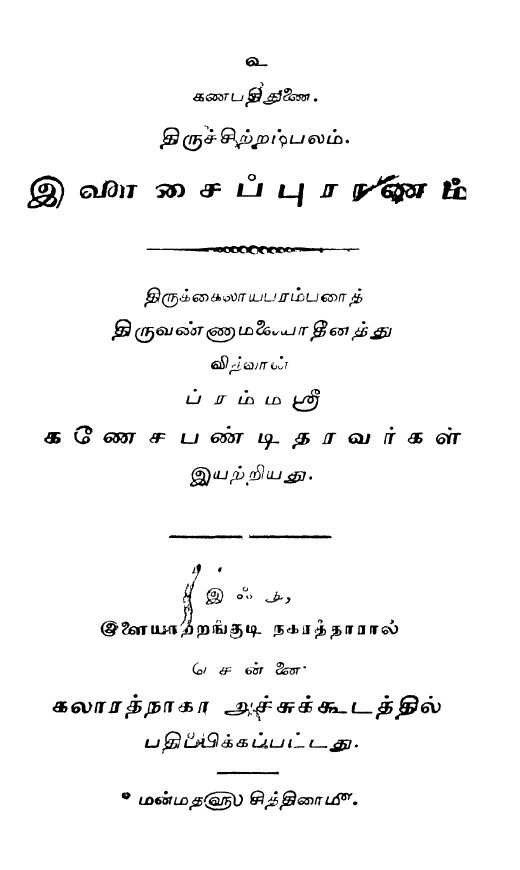 உ
கணபதிதுணை.
திருச்சிற்றம்பலம்.
இளசைப்புராணம்
திருக்கைலாயபரம்பரைத்
திருவண்ணாமலையாதீனத்து
வித்வான்
ப்ரம்மஸ்ரீ
கணேசபண்டிதரவர்கள்
இயற்றியது.
இஃது,
இளையாற்றங்குடி நகரத்தாரால்
சென்னை
கலாரத்நாகர அச்சுக்கூடத்தில்
பதிப்பிக்கப்பட்டது.
மன்மத௵ சித்திரை௴.